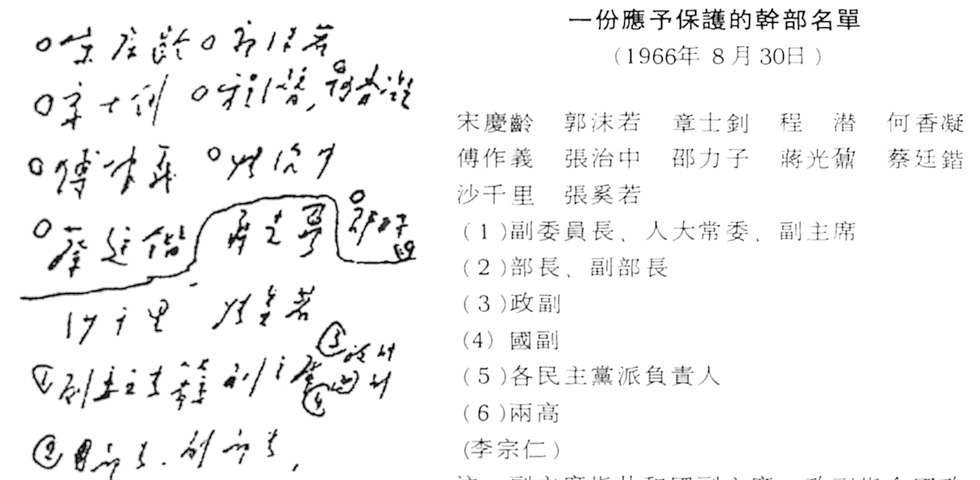 ○宋慶齡 ○郭沫若
○章士釗 ○程潜, ○何香凝
○傅作義 ○張治中
○蔡廷鍇 蔣光鼐 ○邵力子
沙千里 張奚若
①副委員長 副主席 ③政副 ④國副
②部長、副部長,
一份應予保護的幹部名單
(1966年 8月30日)
宋慶齡 郭沫若 章士釗 程 潜 何香凝
傅作義 張治中 邵力子 蔣光鼐 蔡廷鍇
沙千里 張奚若
(1)副委員長、人大常委、副主席
(2)部長、副部長
(3)政副
(4) 國副
(5)各民主黨派負責人
(6)兩高
(李宗仁)